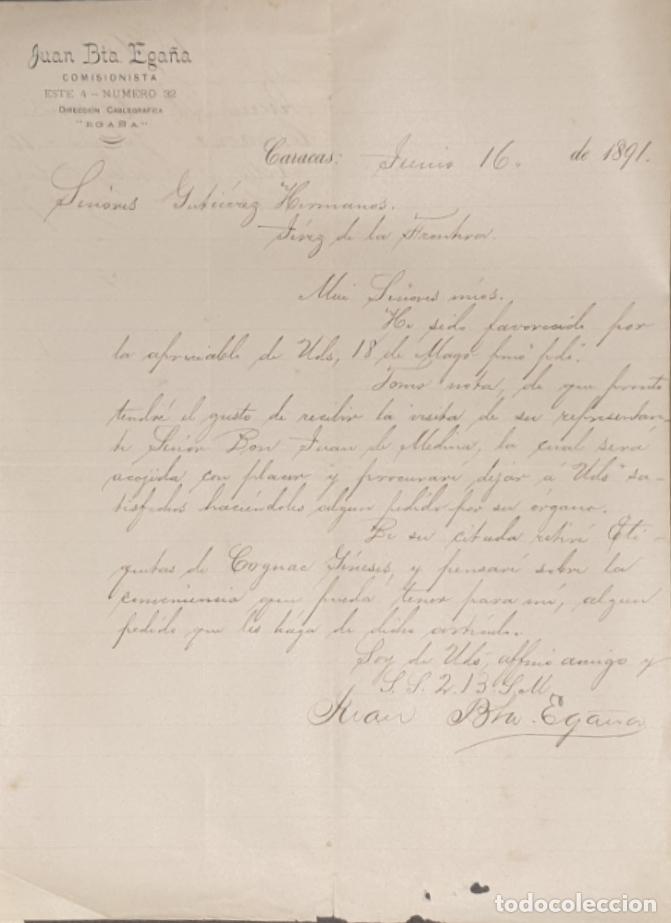 Juan Bta. Egaña
COMISIONISTA
ESTE 4 - NUMERO 32
DIRECCION CABLEGRAFICA
"EGAÑA"
Caracas: Junio 16. de 1891.
Señores Gutiérrez Hermanos.
Jérez de la Frontera.
Mui Señores mios.
He sido favorecido por
la apreciable de Uds, 18 de Mayo pmo pdo.
Tomo nota, de que pronto
tendré el gusto de recibir la visita de su representan-
te Señor Don Juan de Medina, la cual será
acojida con placer y procuraré dejar á Uds sa-
tisfechos haciéndoles algun pedido por su órgano.
De su citada retiré Eti-
quetas de Cognac Jéreses, y pensaré sobre la
conveniencia que pueda tener para mi, algun
pedido que les haga de dicho artículo.
Soy de Uds, affmo amigo y
S. S. 2. B. S. M.
Juan Bta. Egaña
todocoleccion